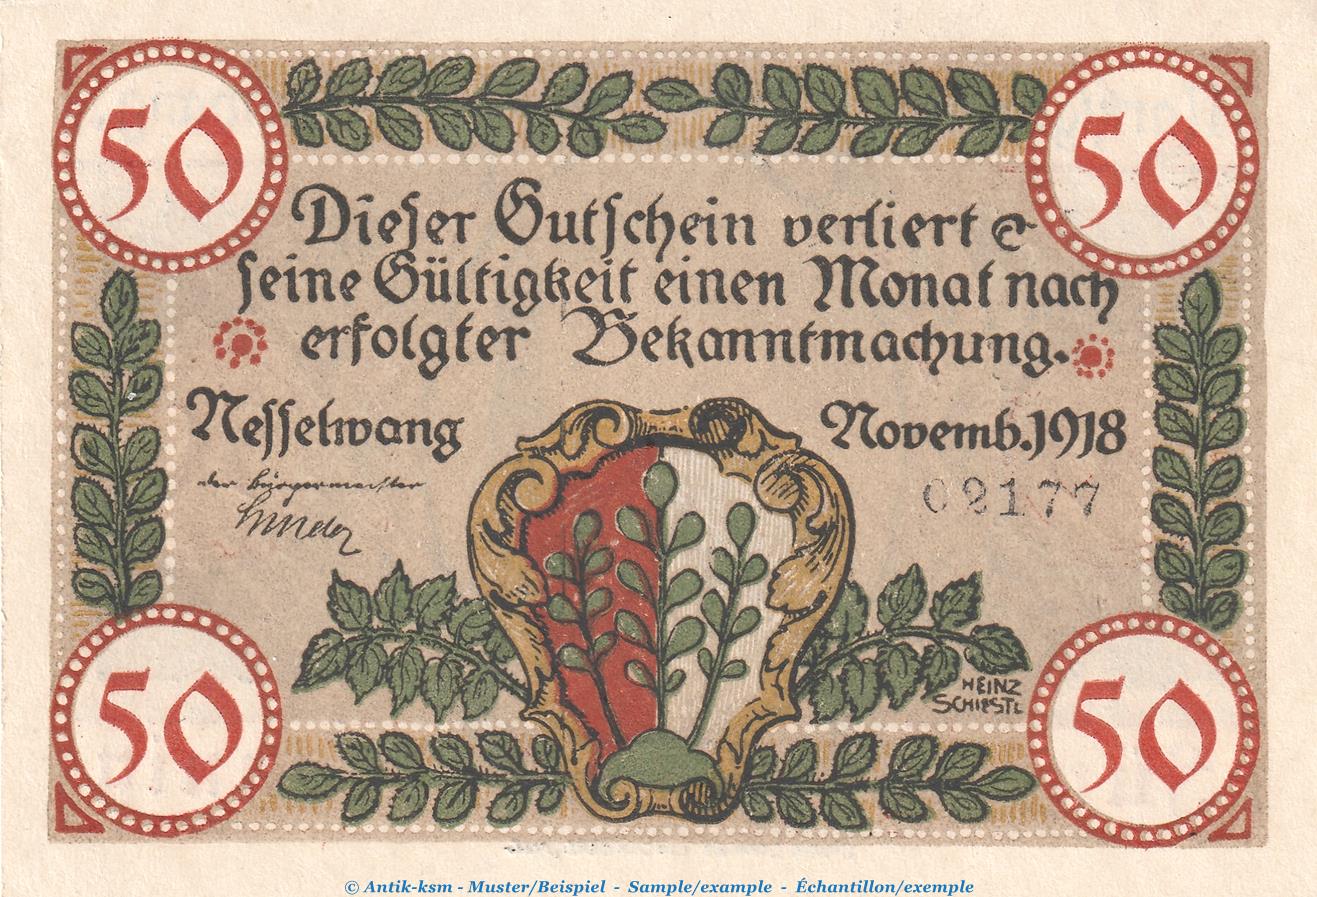 50
50
Dieser Gutschein verliert
seine Gültigkeit einen Monat nach
erfolgter Bekanntmachung.
Nesselwang
Novemb. 1918
der Bürgermeister
02177
HEINZ
SCHIESTL
50
50
© Antik-ksm - Muster/Beispiel - Sample/example - Échantillon/exemple